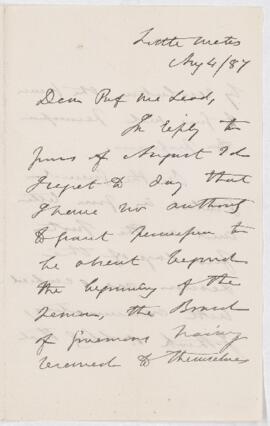 Little Metis
Aug 4/87
Dear Prof McLeod,
In reply to
yours of August 2d
I regret to say that
I have no authority
to grant permission to
be absent beyond
the beginning of the
Session, the Board
of Governors having
reserved to themselves